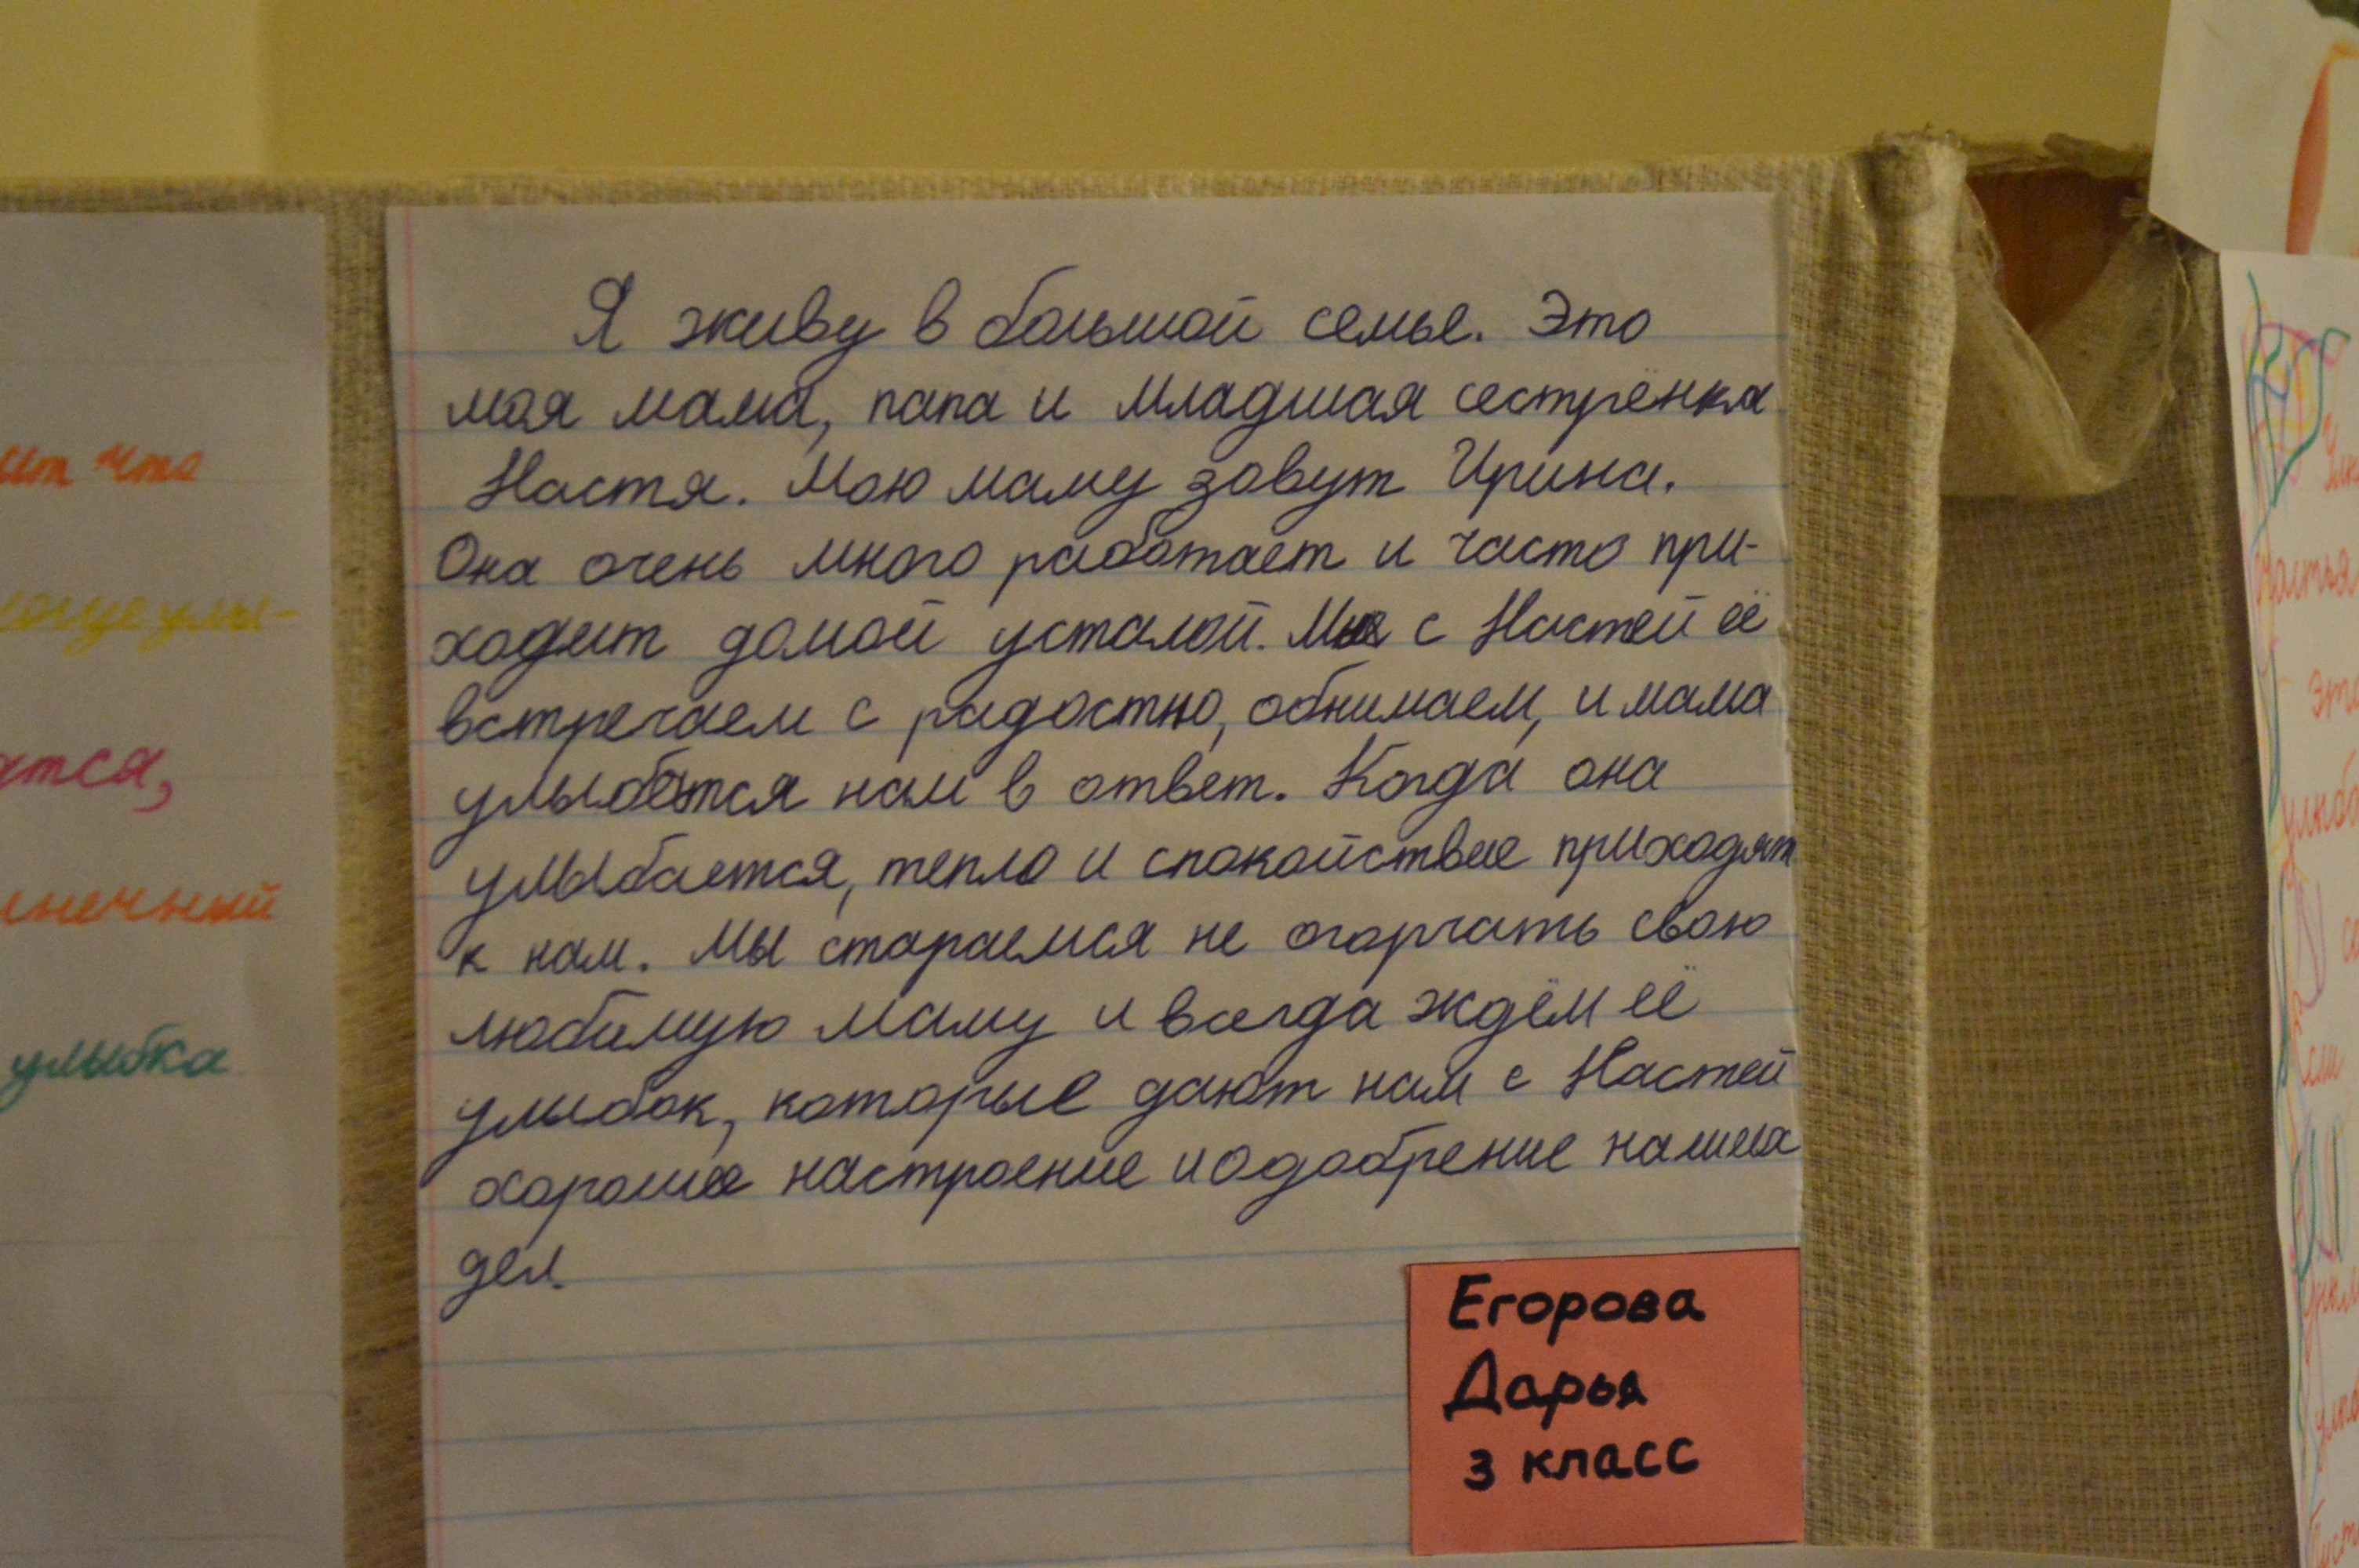 Я живу в большой семье. Это
моя мама, папа и младшая сестрёнка
Настя. Мою маму зовут Ирина.
Она очень много работает и часто при-
ходит домой усталой. Мы с Настей её
встречаем с радостью, обнимаем, и мама
улыбается нам в ответ. Когда она
улыбается, тепло и спокойствие приходят
к нам. Мы стараемся не огорчать свою
любимую маму и всегда ждём её
улыбок, которые дают нам с Настей
хорошее настроение и одобрение наших
дел.
Егорова
Дарья
3 класс
что
улы-
ятся,
нечный
улыбка